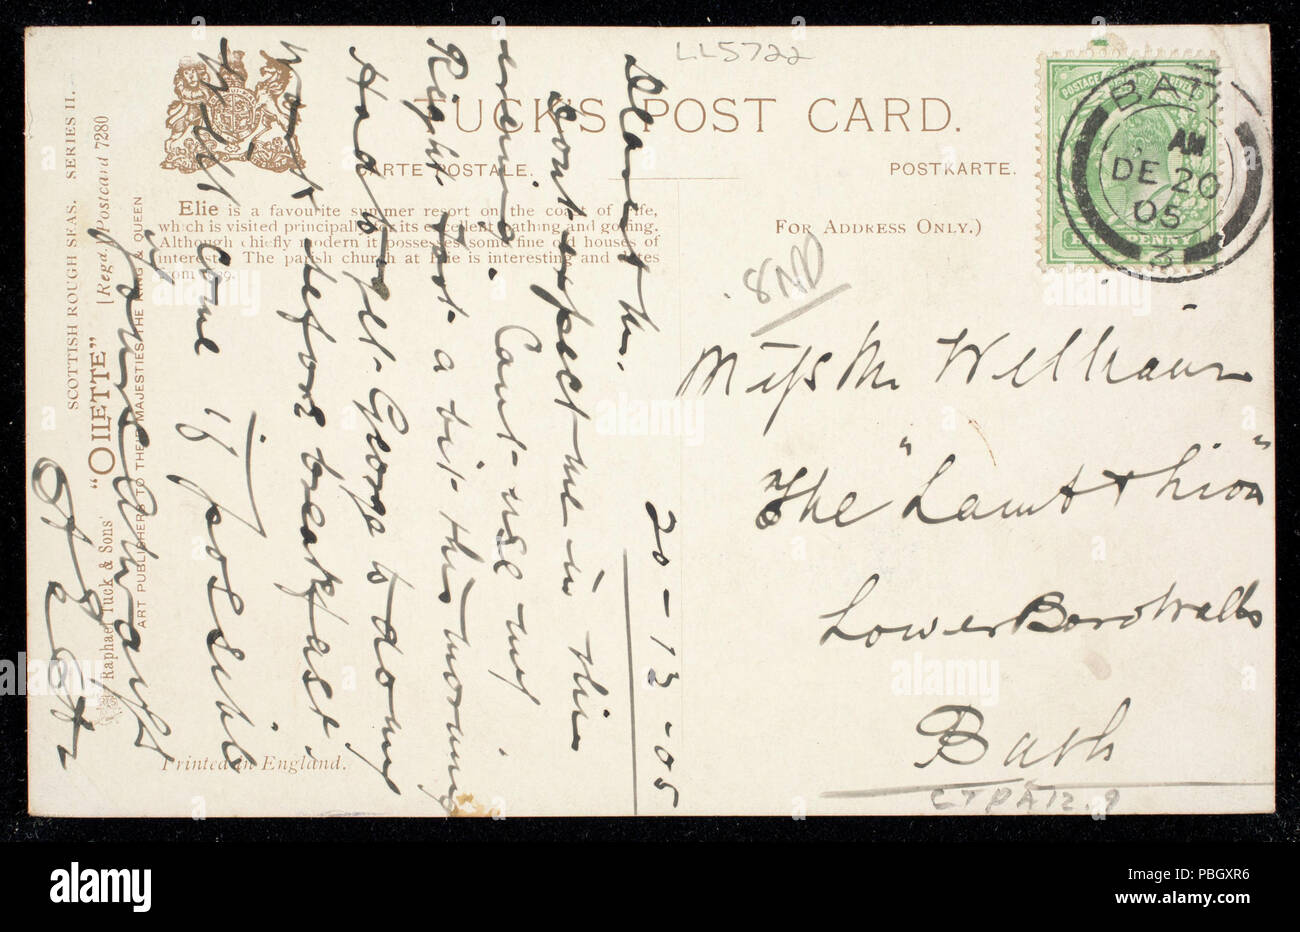 LL5722
TUCK'S POST CARD.
CARTE POSTALE.
POSTKARTE.
(FOR ADDRESS ONLY.)
Elie is a favourite summer resort on the coast of Fife,
which is visited principally for its excellent bathing and golfing.
Although chiefly modern it possesses some fine old houses of
interest. The parish church at Elie is interesting and dates
from
SCOTTISH ROUGH SEAS. SERIES II.
Raphael Tuck & Sons' "OILETTE" [Regd.] Postcard 7280
ART PUBLISHERS TO THEIR MAJESTIES THE KING & QUEEN
Printed in England.
BATH
AM
DE 20
05
3
POSTAGE
HALFPENNY
20-12-05
Dearest M.
Dont expect me in this
evening. Cant use my
Right foot a bit this morning
Had to get George to
before breakfast.
Will come if possible
Miss M Williams
The "Lamb & Lion"
Lower Boro Walls
Bath
CTPA12.9
alamy
Image ID: PBGXR6
www.alamy.com